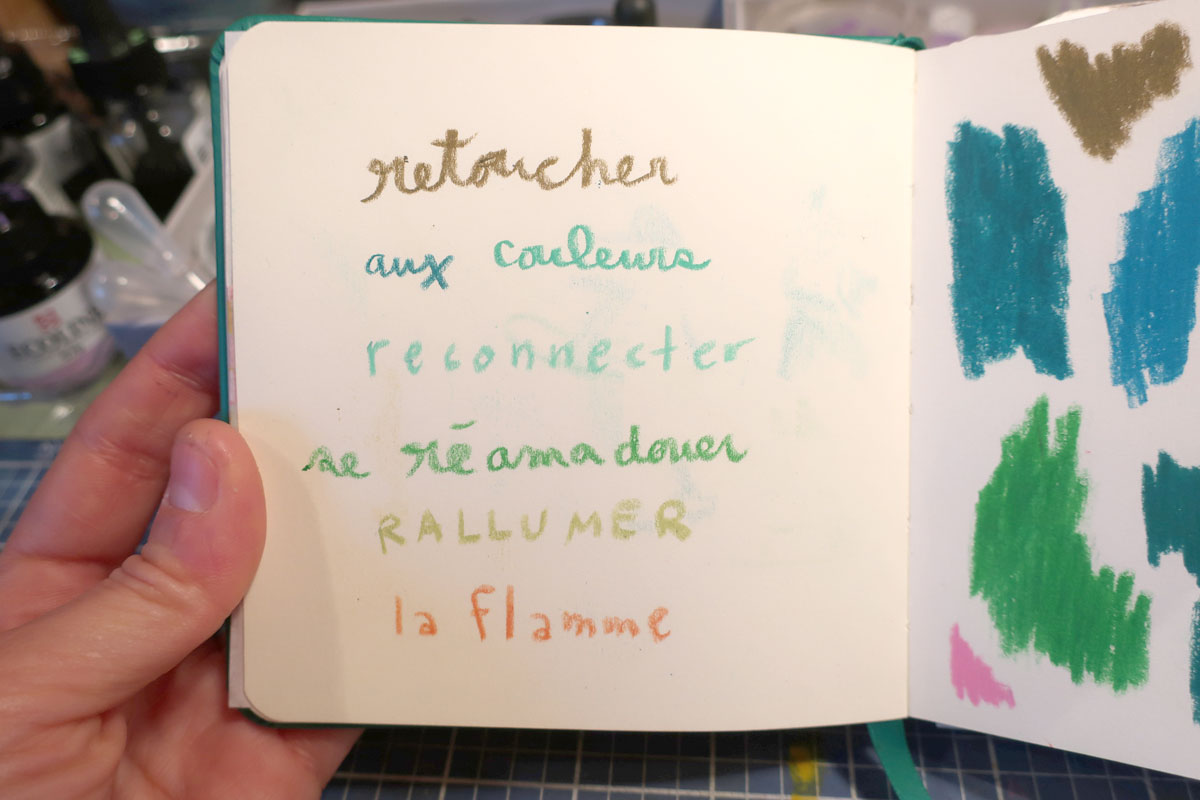 retoucher
aux couleurs
reconnecter
se réamadouer
RALLUMER
la flamme